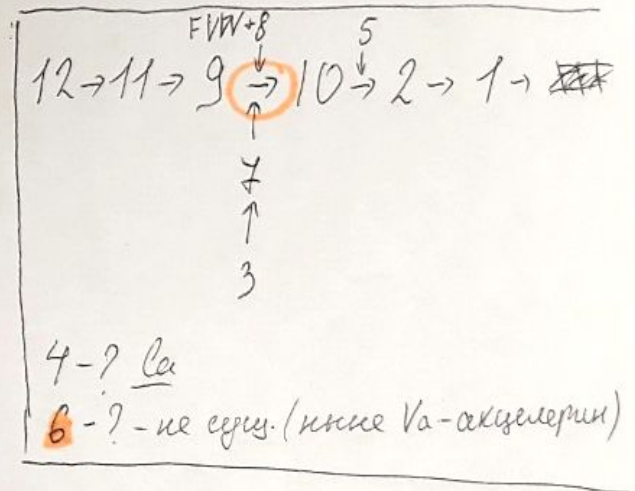 FVW+8 5
12→11→9→10→2→1→
↑
7
↑
3
4-? Ca
6-?-не сущ. (ныне Va-акцелерин)